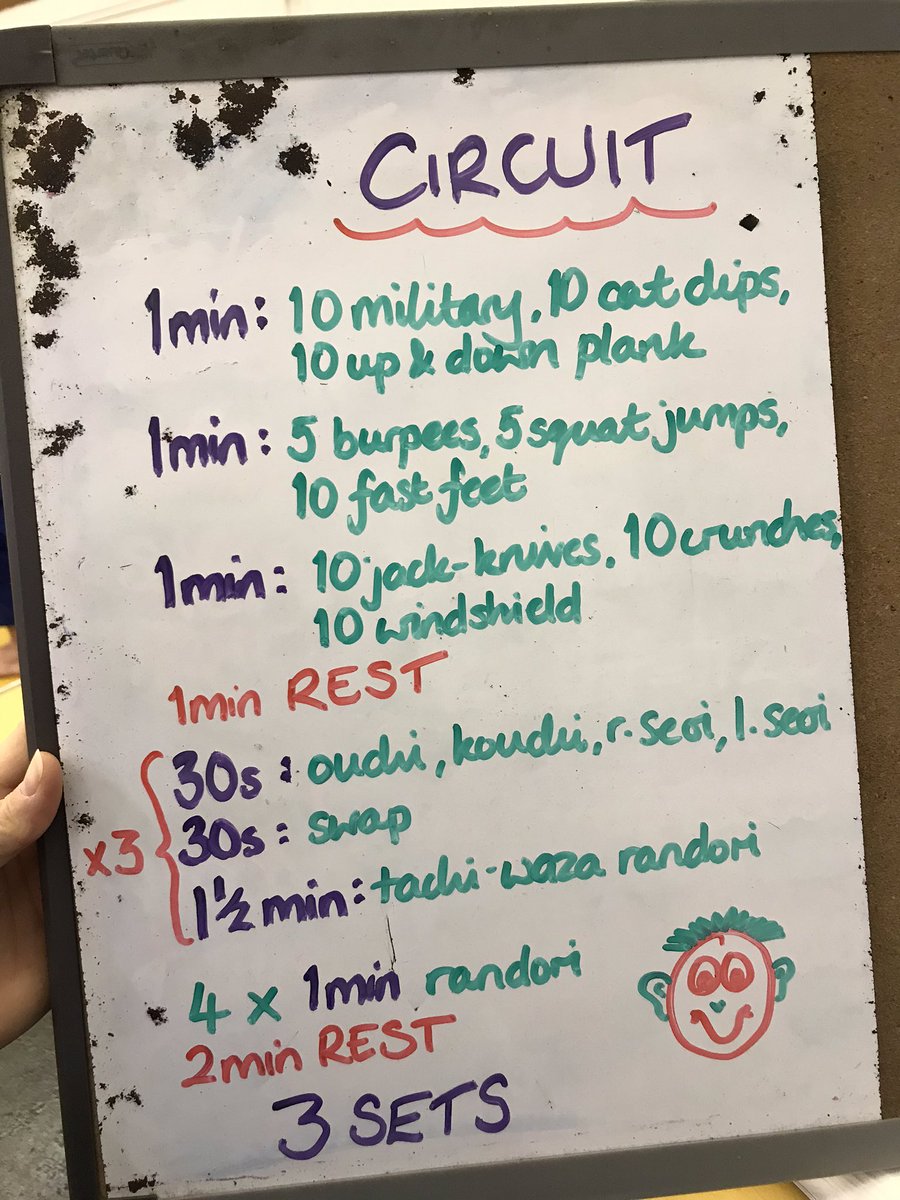 CIRCUIT
1min: 10 military, 10 cat dips,
10 up & down plank
1min: 5 burpees, 5 squat jumps,
10 fast feet
1min: 10 jack-knives, 10 crunches,
10 windshield
1min REST
30s: ouchi, kouchi, r. seoi, l. seoi
x3 30s: swap
1½ min: tachi-waza randori
4 x 1min randori
2min REST
3 SETS